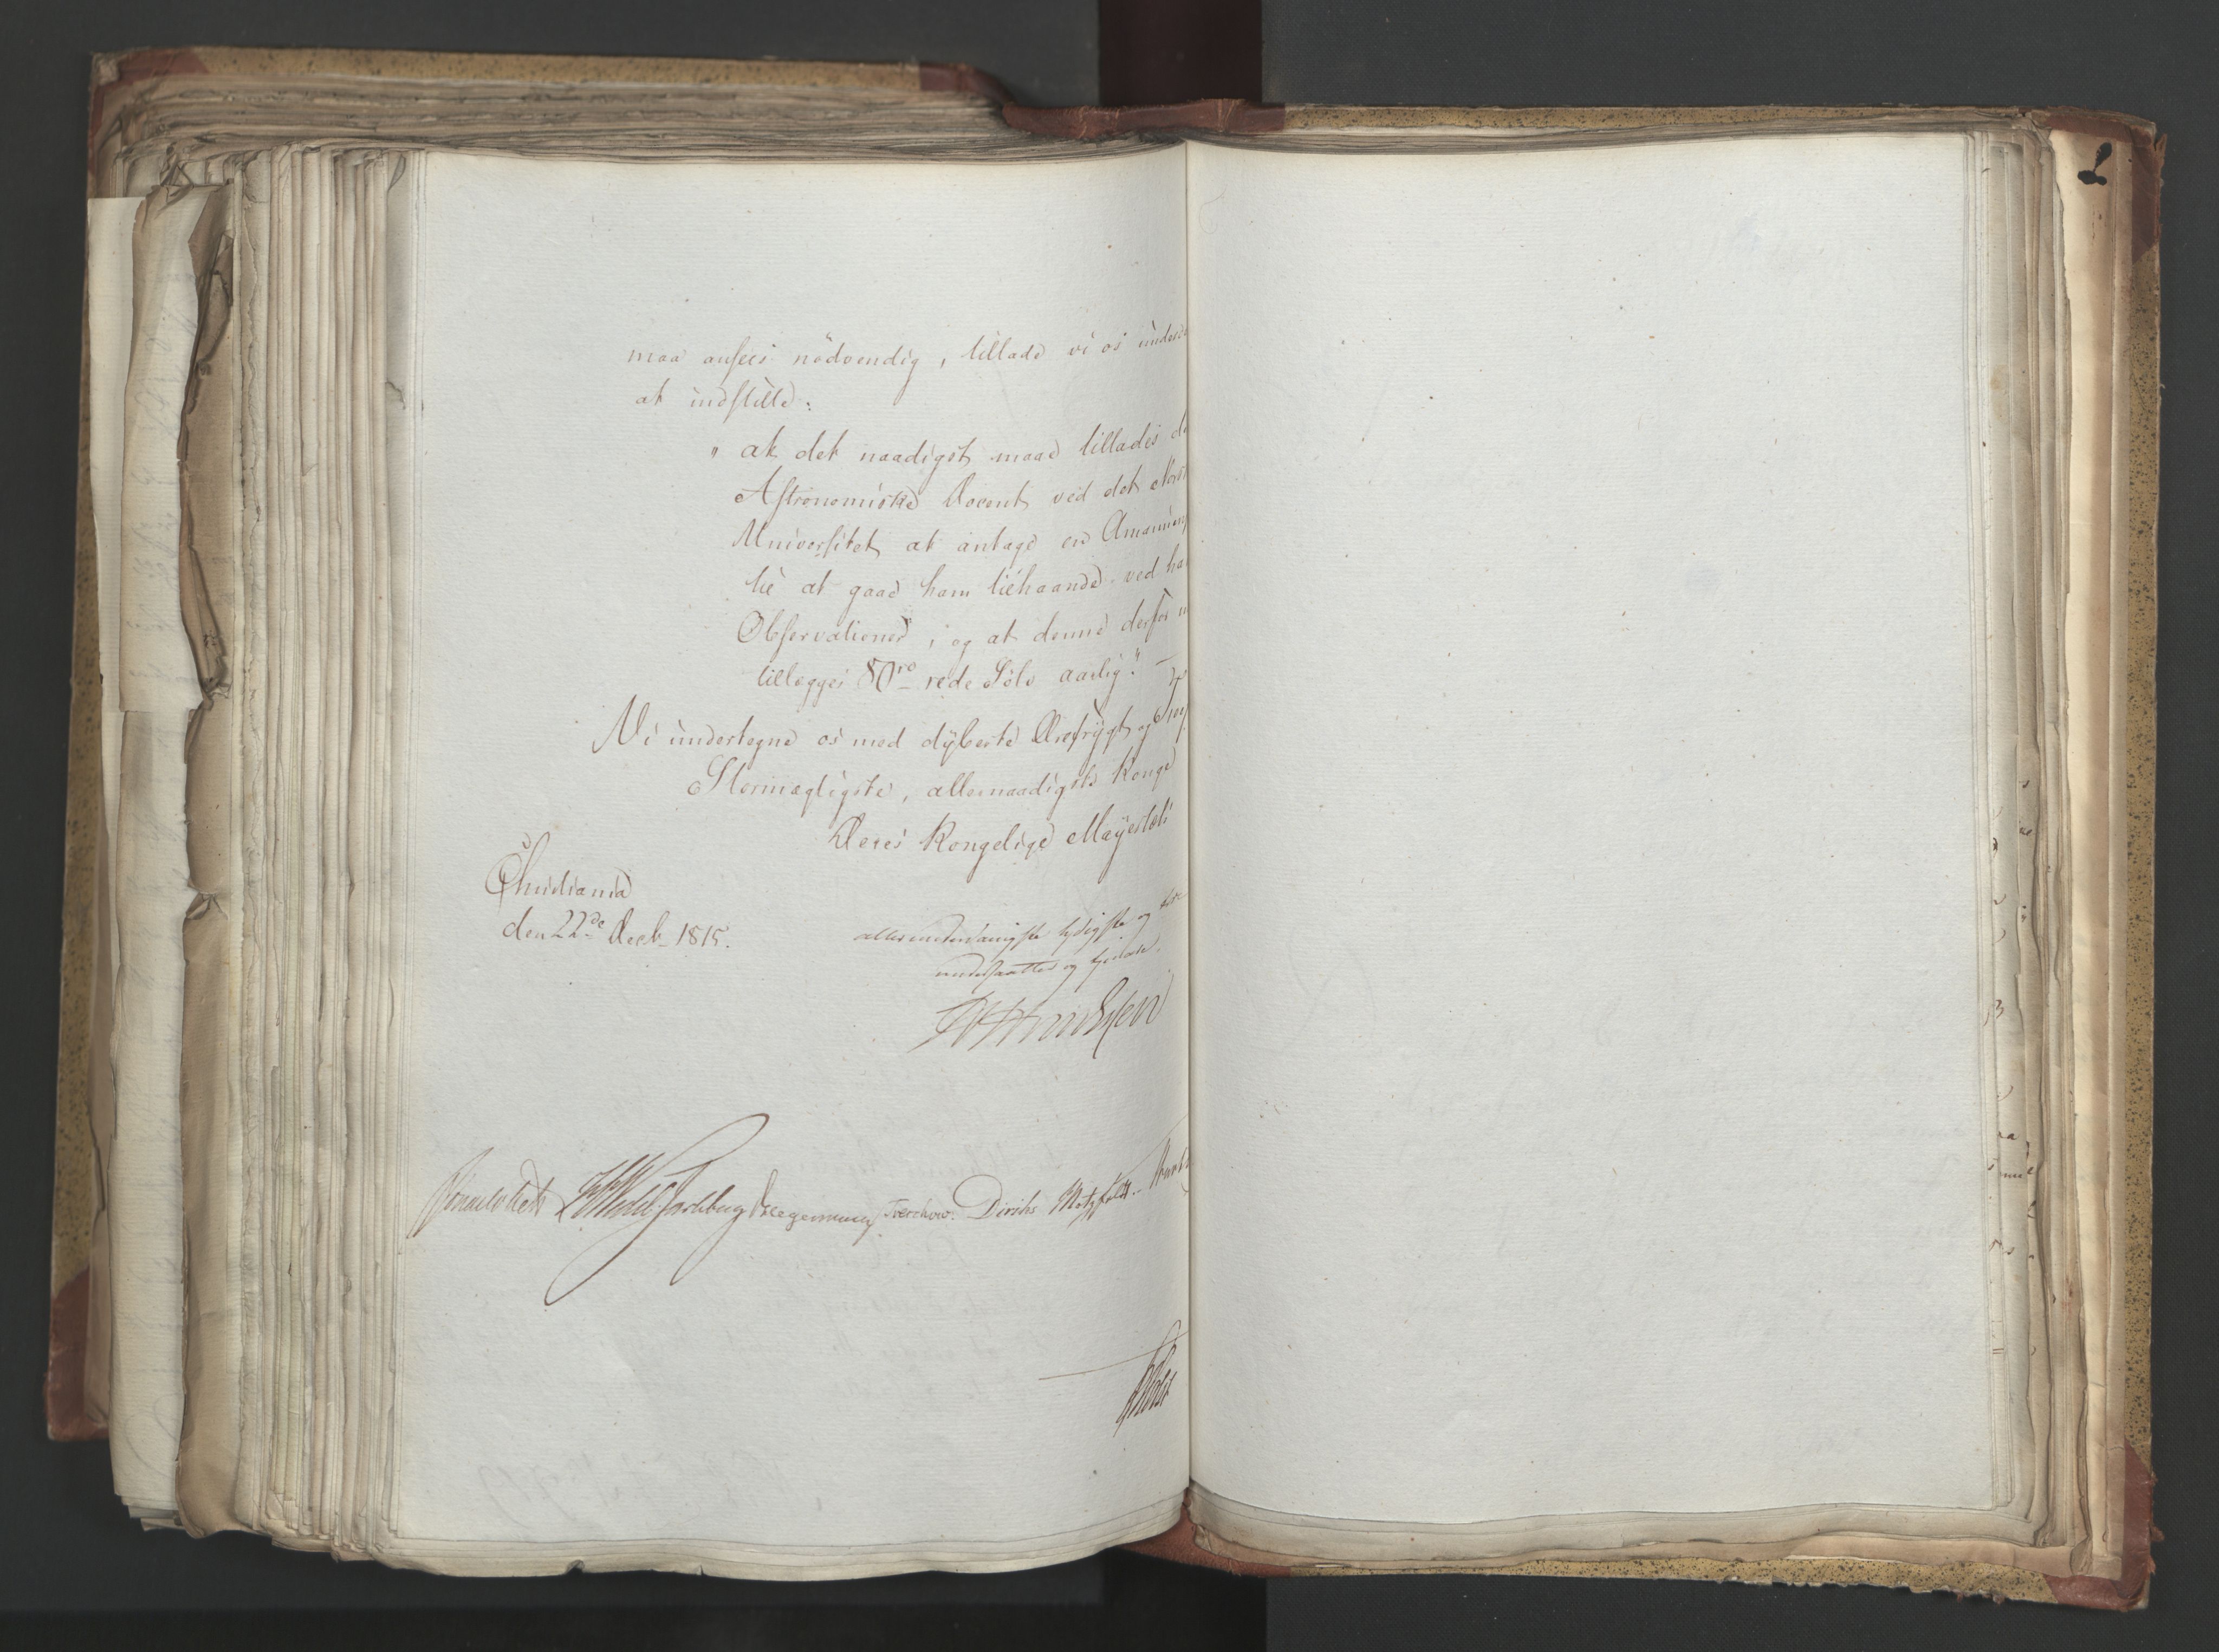 maa ansees nödvendig, tillade vi os
at indstille:
" at det naadigst maae tillades
Astronomiske Docent ved det
Universitet at antage en
til at gaae ham tilhaande ved
Observationer, og at denne derfor
tillægges 80 rede Sølv aarlig."
Vi undertegne os med dybeste Ærefrygt og
Stormægtigste, allernaadigste Konge
Deres Kongelige Mayestæts
Christiania
den 22de Decb. 1815.
allerunderdanigste lydigste og
undersaatter og tjenere.
Wedel Jarlsberg Hegermann Treschow. Diriks Motzfeldt.
Holst